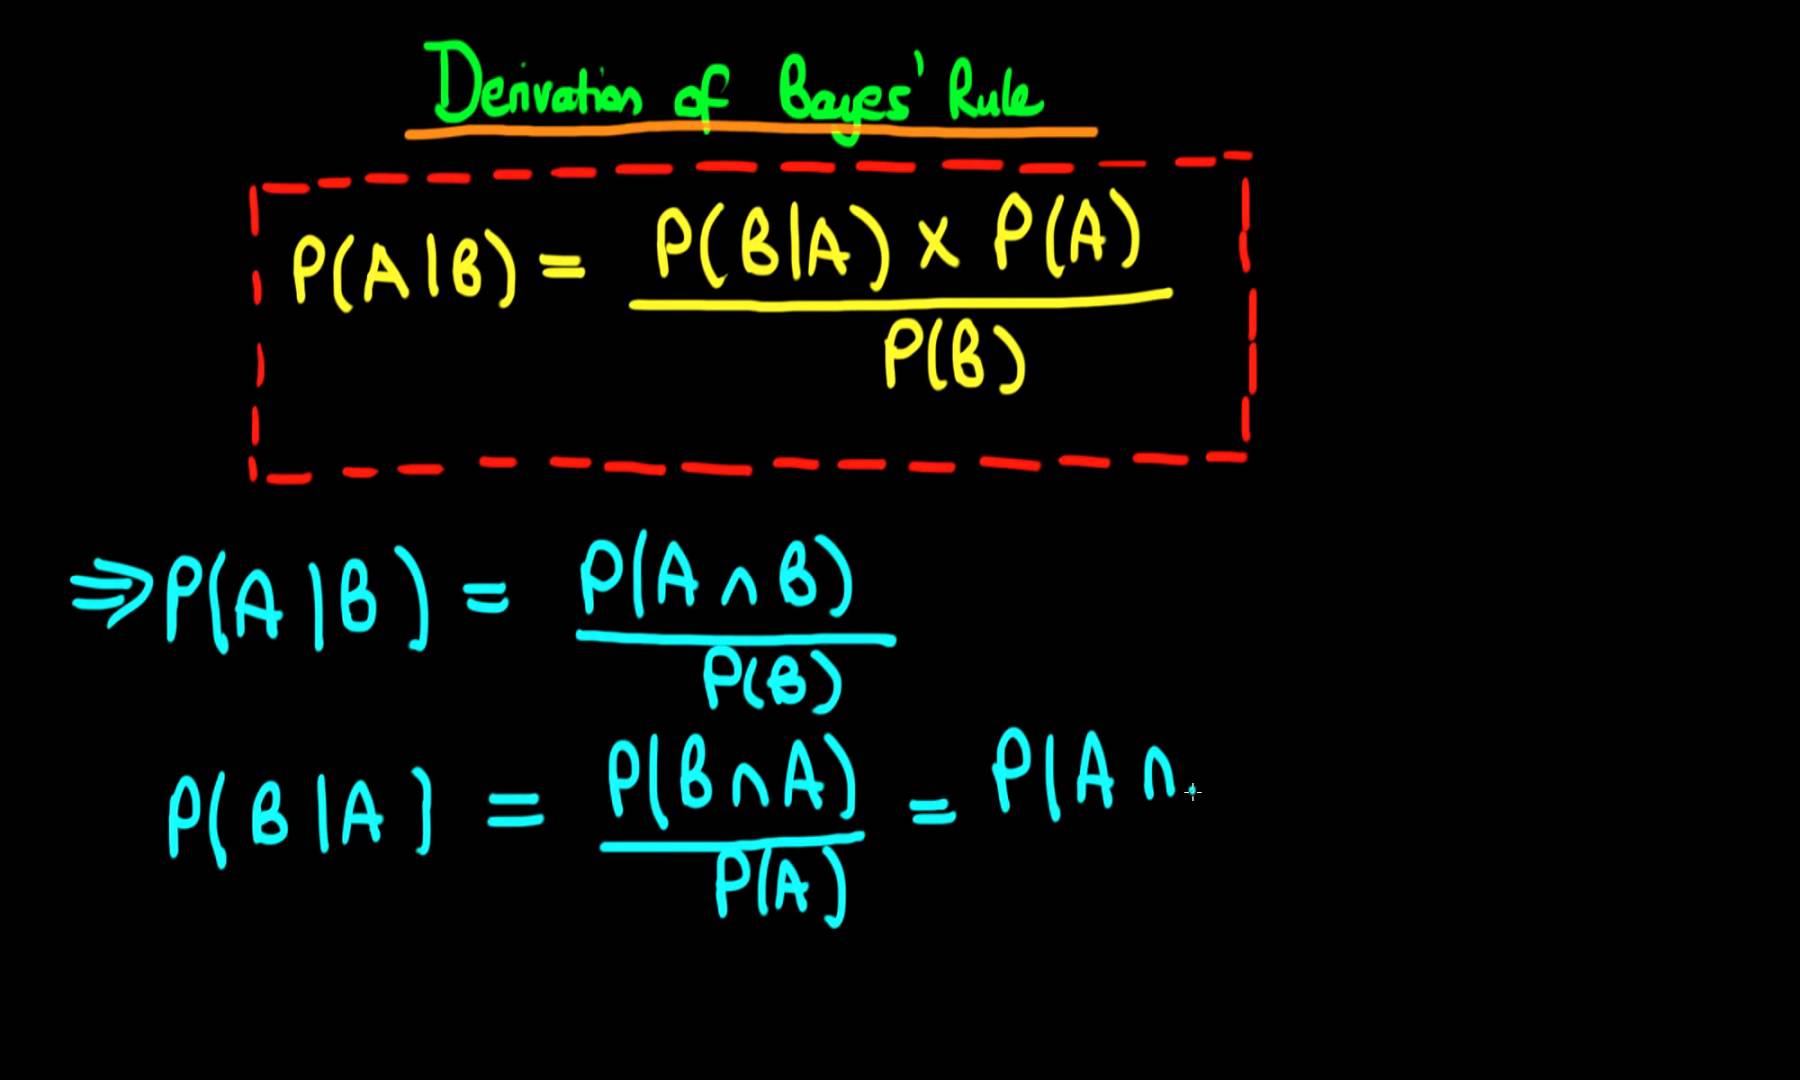 Derivation of Bayes' Rule
P(A|B) = P(B|A) x P(A)
P(B)
⇒ P(A|B) = P(A ∩ B)
P(B)
P(B|A) = P(B∩A) = P(A ∩
P(A)